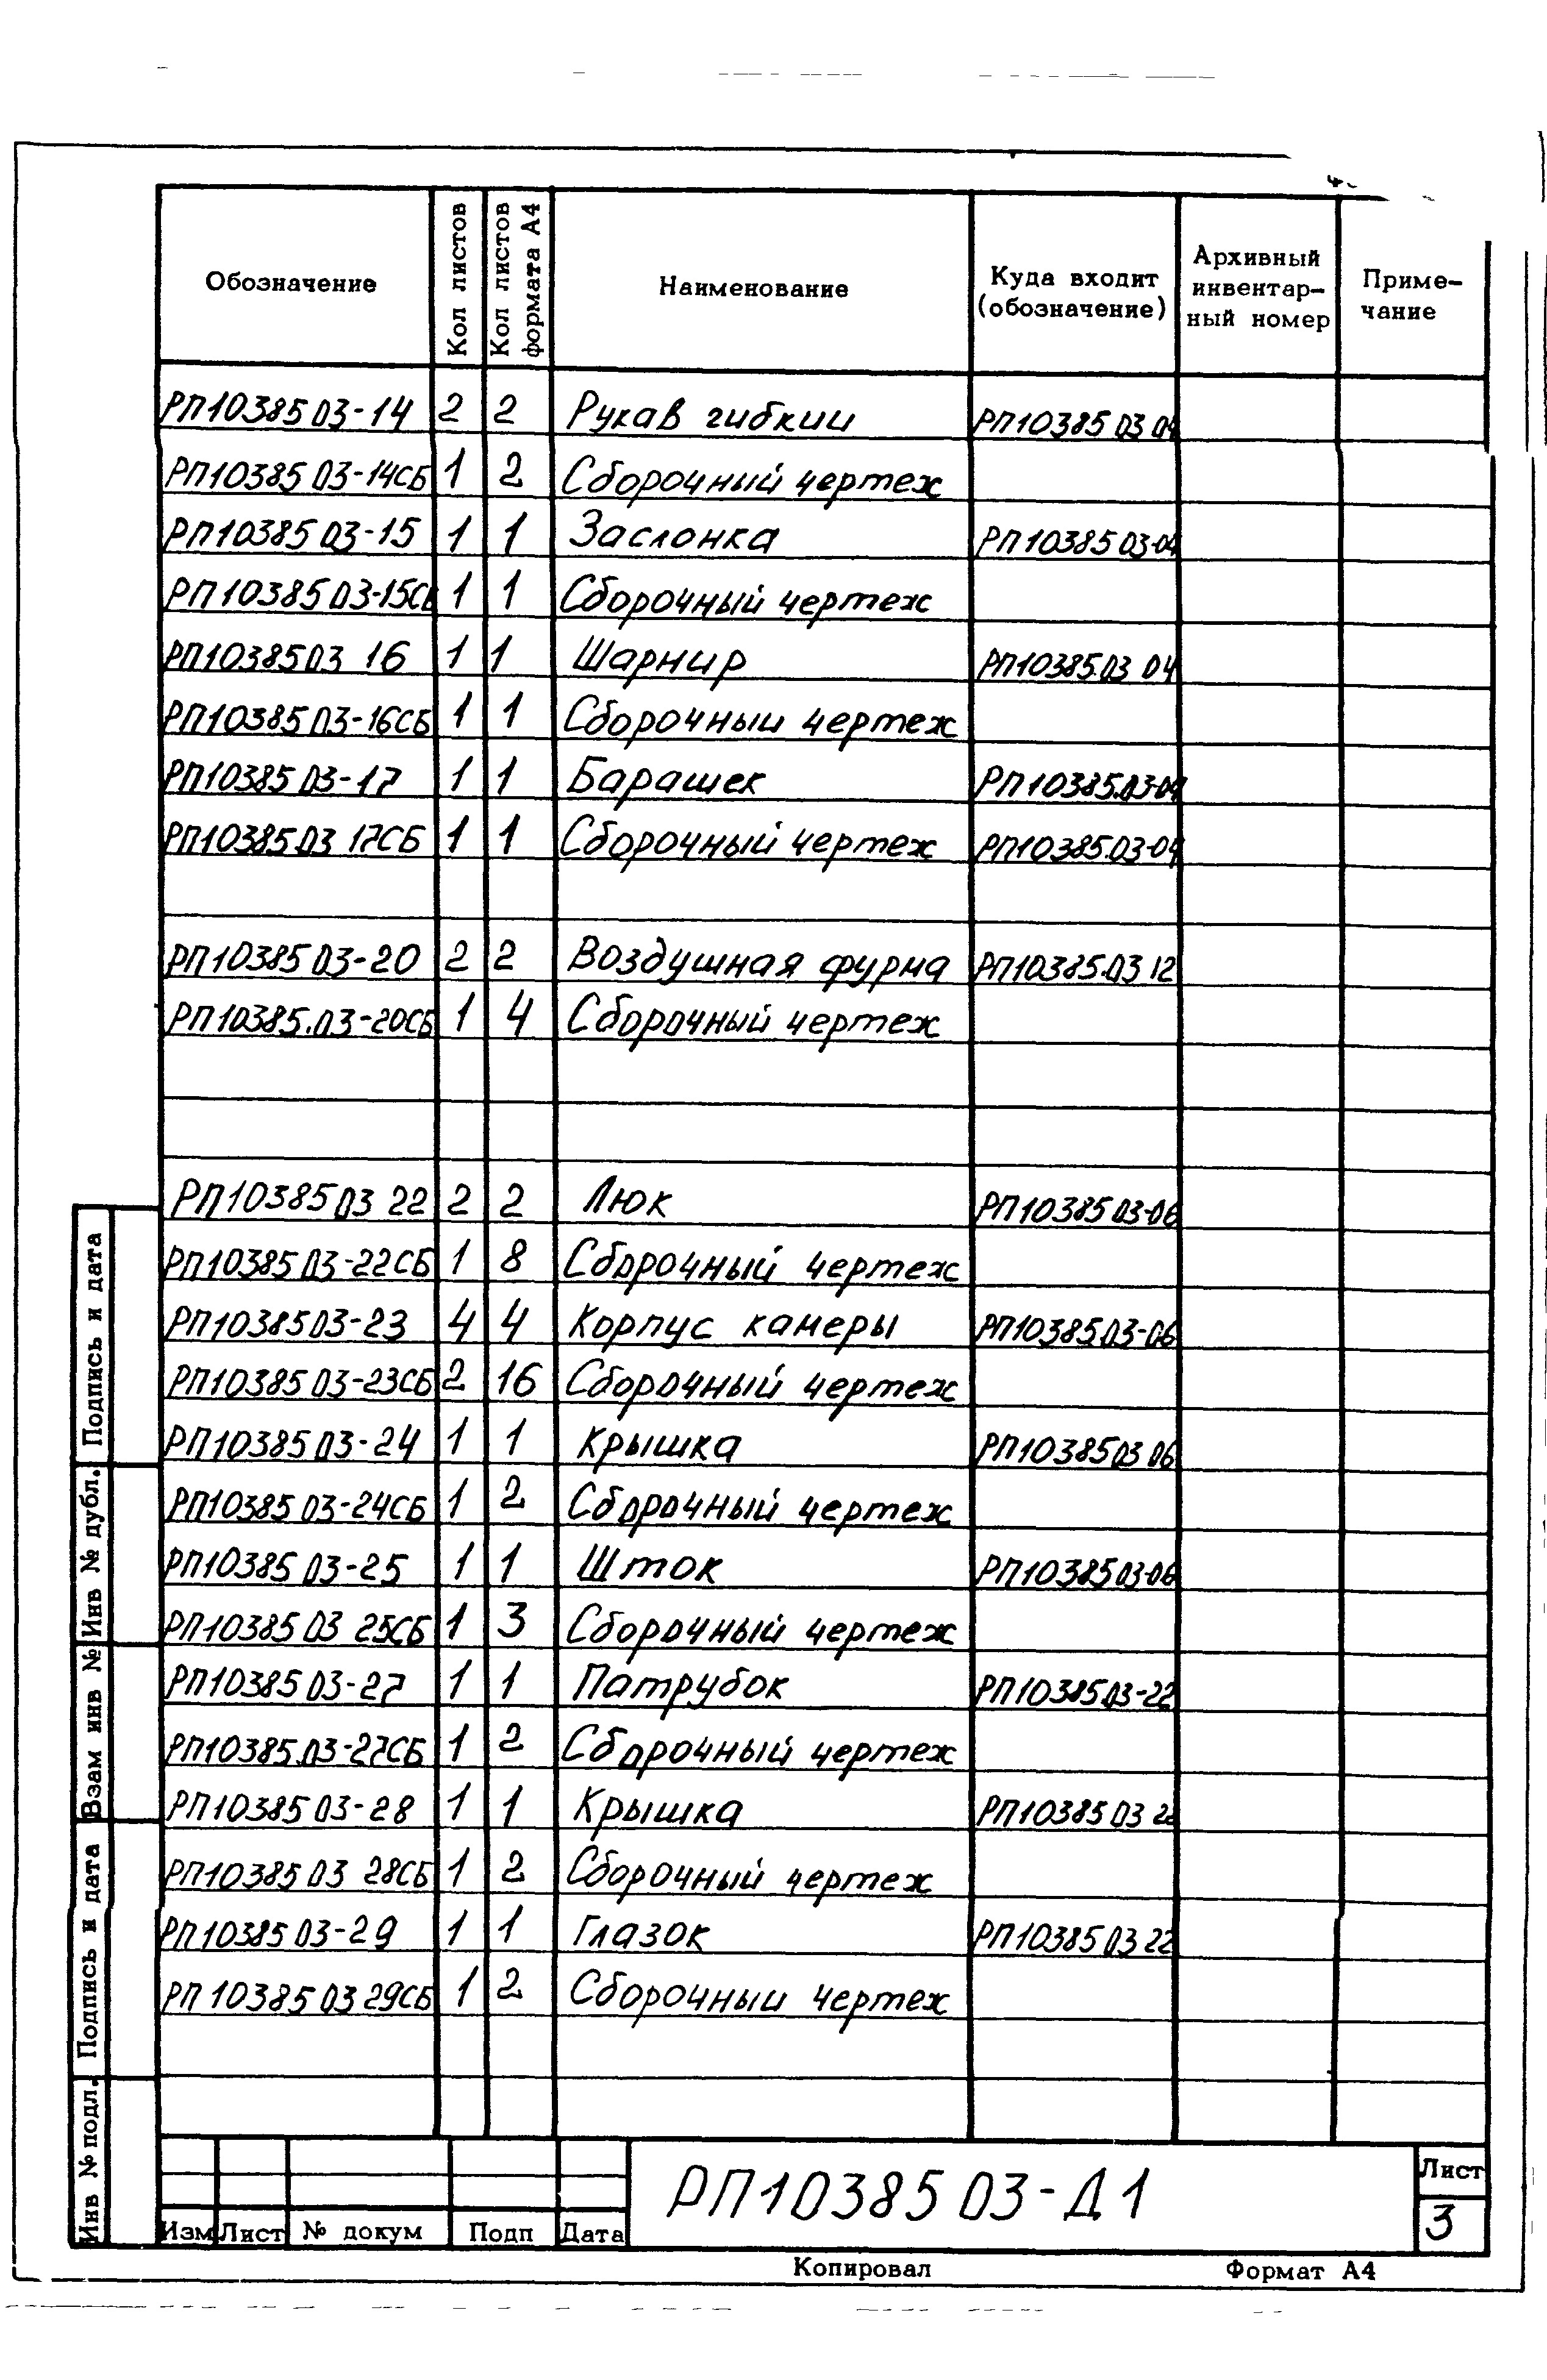 Обозначение
Кол листов
Кол листов формата А4
Наименование
Куда входит (обозначение)
Архивный инвентар-ный номер
Приме-чание
РП10385 03-14 2 2 Рукав гибкии РП10385 03 04
РП10385 03-14СБ 1 2 Сборочный чертеж
РП10385 03-15 1 1 Заслонка РП10385 03-04
РП10385 03-15СБ 1 1 Сборочный чертеж
РП10385 03 16 1 1 Шарнир РП10385.03 04
РП10385 03-16СБ 1 1 Сборочныи чертеж
РП10385 03-17 1 1 Барашек РП10385.03-04
РП10385 03 17СБ 1 1 Сборочный чертеж РП10385.03-04
РП10385 03-20 2 2 Воздушная фурма РП10385.03 12
РП10385.03-20СБ 1 4 Сборочный чертеж
РП10385 03 22 2 2 Люк РП10385 03-06
РП10385 03-22СБ 1 8 Сборочный чертеж
РП10385 03-23 4 4 Корпус камеры РП10385 03-06
РП10385 03-23СБ 2 16 Сборочный чертеж
РП10385 03-24 1 1 Крышка РП10385 03 06
РП10385 03-24СБ 1 2 Сборочный чертеж
РП10385 03-25 1 1 Шток РП10385 03-06
РП10385 03 25СБ 1 3 Сборочный чертеж
РП10385 03-27 1 1 Патрубок РП10385 03-22
РП10385.03-27СБ 1 2 Сборочный чертеж
РП10385 03-28 1 1 Крышка РП10385 03 22
РП10385 03 28СБ 1 2 Сборочный чертеж
РП10385 03-29 1 1 Глазок РП10385 03 22
РП10385 03 29СБ 1 2 Сборочныи чертеж
Подпись и дата
Инв № дубл.
Взам инв №
Подпись и дата
Инв № подл.
Изм Лист № докум Подп Дата
РП10385 03-Д1
Лист
3
Копировал Формат А4